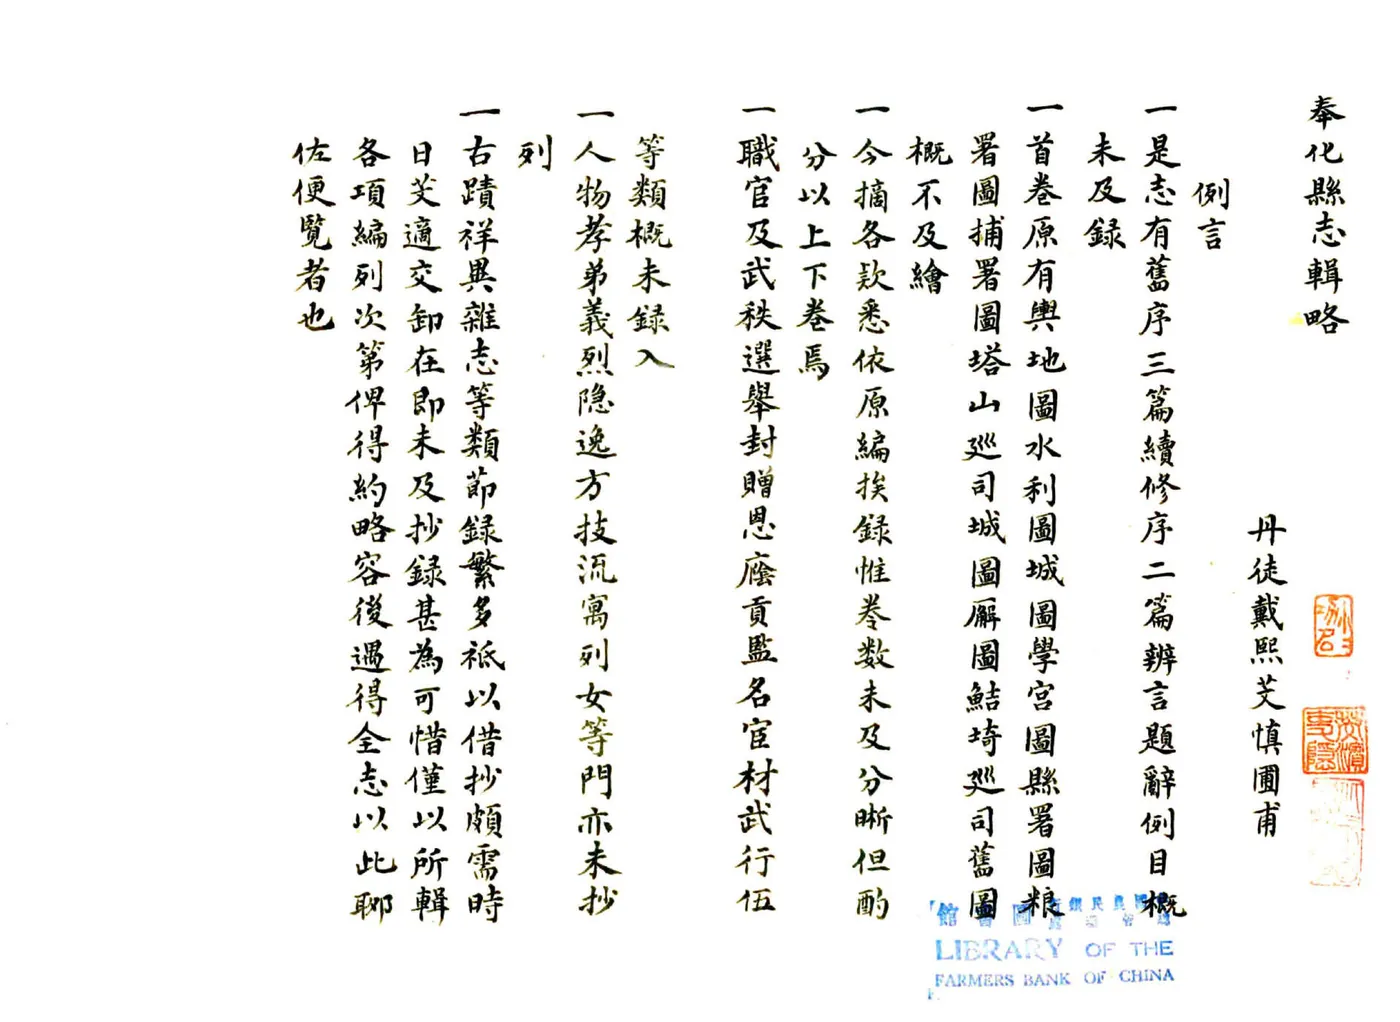 奉化縣志輯略
丹徒戴熙芠慎圃甫
例言
一是志有舊序三篇續修序二篇辨言題辭例目概
未及録
一首卷原有輿地圖水利圖城圖學宮圖縣署圖粮
署圖捕署圖塔山廵司城圖廨圖鮚埼廵司舊圖
概不及繪
一今摘各款悉依原編挨録惟卷数未及分晰但酌
分以上下卷焉
一職官及武秩選舉封贈恩廕貢監名宦材武行伍
等類概未録入
一人物孝弟義烈隐逸方技流寓列女等門亦未抄
列
一古蹟祥異雜志等類節録繁多祗以借抄頗需時
日芠適交卸在即未及抄録甚為可惜僅以所輯
各項編列次第俾得約略容後遇得全志以此聊
佐便覽者也
LIBRARY OF THE
FARMERS BANK OF CHINA